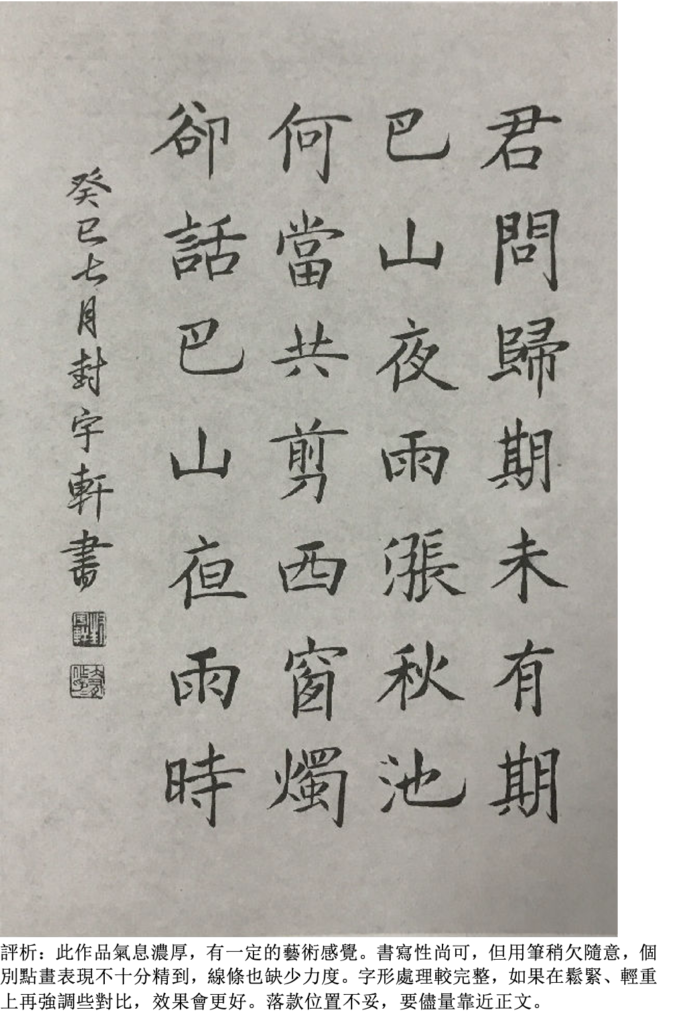 君問歸期未有期
巴山夜雨漲秋池
何當共剪西窗燭
卻話巴山亱雨時
癸巳七月封宇軒書
評析：此作品氣息濃厚，有一定的藝術感覺。書寫性尚可，但用筆稍欠隨意，個
別點畫表現不十分精到，線條也缺少力度。字形處理較完整，如果在鬆緊、輕重
上再強調些對比，效果會更好。落款位置不妥，要儘量靠近正文。